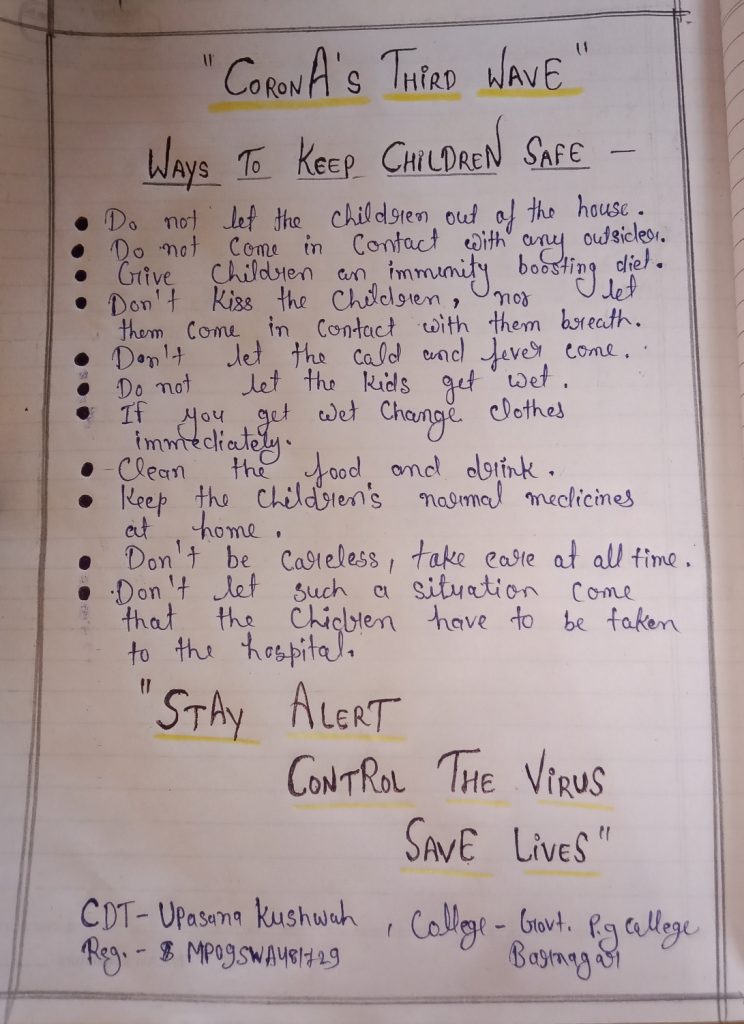 "CORONA'S THIRD WAVE"
WAYS TO KEEP CHILDREN SAFE -
• Do not let the children out of the house.
• Do not come in contact with any outsider.
• Give children an immunity boosting diet.
• Don't kiss the children, nor let
them come in contact with them breath.
• Don't let the cald and fever come.
• Do not let the kids get wet.
• If you get wet change clothes
immediately.
• Clean the food and drink.
• Keep the children's normal medicines
at home.
• Don't be careless, take care at all time.
• Don't let such a situation come
that the children have to be taken
to the hospital.
"STAY ALERT
CONTROL THE VIRUS
SAVE LIVES"
CDT- Upasana Kushwah, College - Govt. P.g college
Reg. - MP09SWA481729 Barnagar